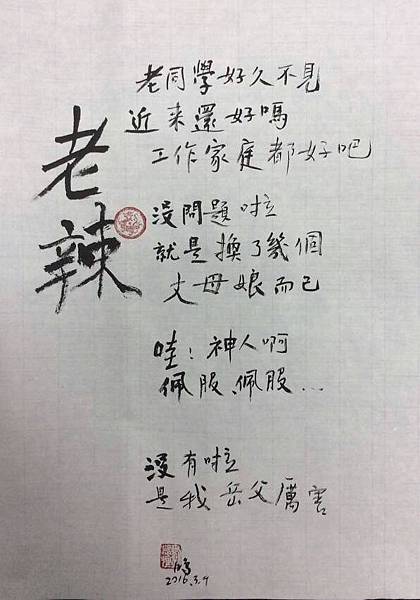 老辣
老同學好久不見
近来還好嗎
工作家庭都好吧
没問題啦
就是換了幾個
丈母娘而已
哇!神人啊
佩服、佩服...
没有啦
是我岳父厲害
2016.3.4